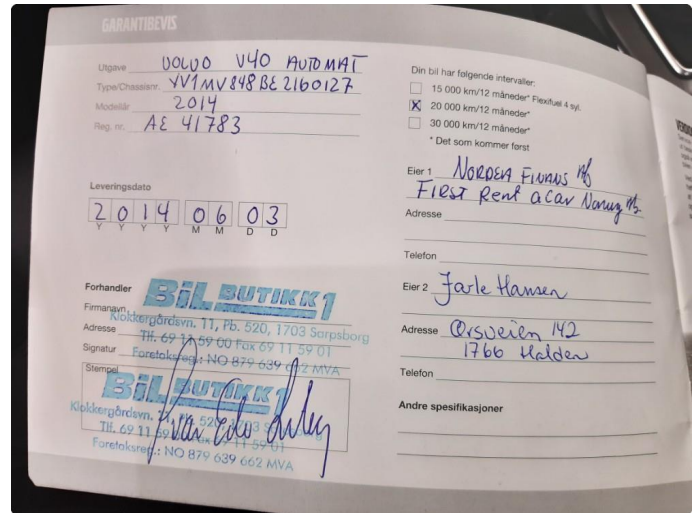 GARANTIBEVIS
Utgave VOLVO V40 AUTOMAT
Type/Chassisnr. YV1MV848BE2160127
Modellår 2014
Reg. nr. AE 41783
Leveringsdato
2014 06 03
Y Y Y Y M M D D
Forhandler BiL BUTIKK1
Firmanavn Klokkergårdsvn. 11, Pb. 520, 1703 Sarpsborg
Adresse Tlf. 69 11 59 00 Fax 69 11 59 01
Signatur Foretaksreg.: NO 879 639 662 MVA
Stempel
BiL BUTIKK1
Klokkergårdsvn. 11, Pb. 520, 1703 Sarpsborg
Tlf. 69 11 59 00 Fax 69 11 59 01
Foretaksreg.: NO 879 639 662 MVA
Din bil har følgende intervaller:
15 000 km/12 måneder* Flexifuel 4 syl.
X 20 000 km/12 måneder*
30 000 km/12 måneder*
* Det som kommer først
Eier 1 NORDEA FINANS
FIRST Rent a car Norway
Adresse
Telefon
Eier 2 Jarle Hansen
Adresse Ørsveien 142
1766 Halden
Telefon
Andre spesifikasjoner